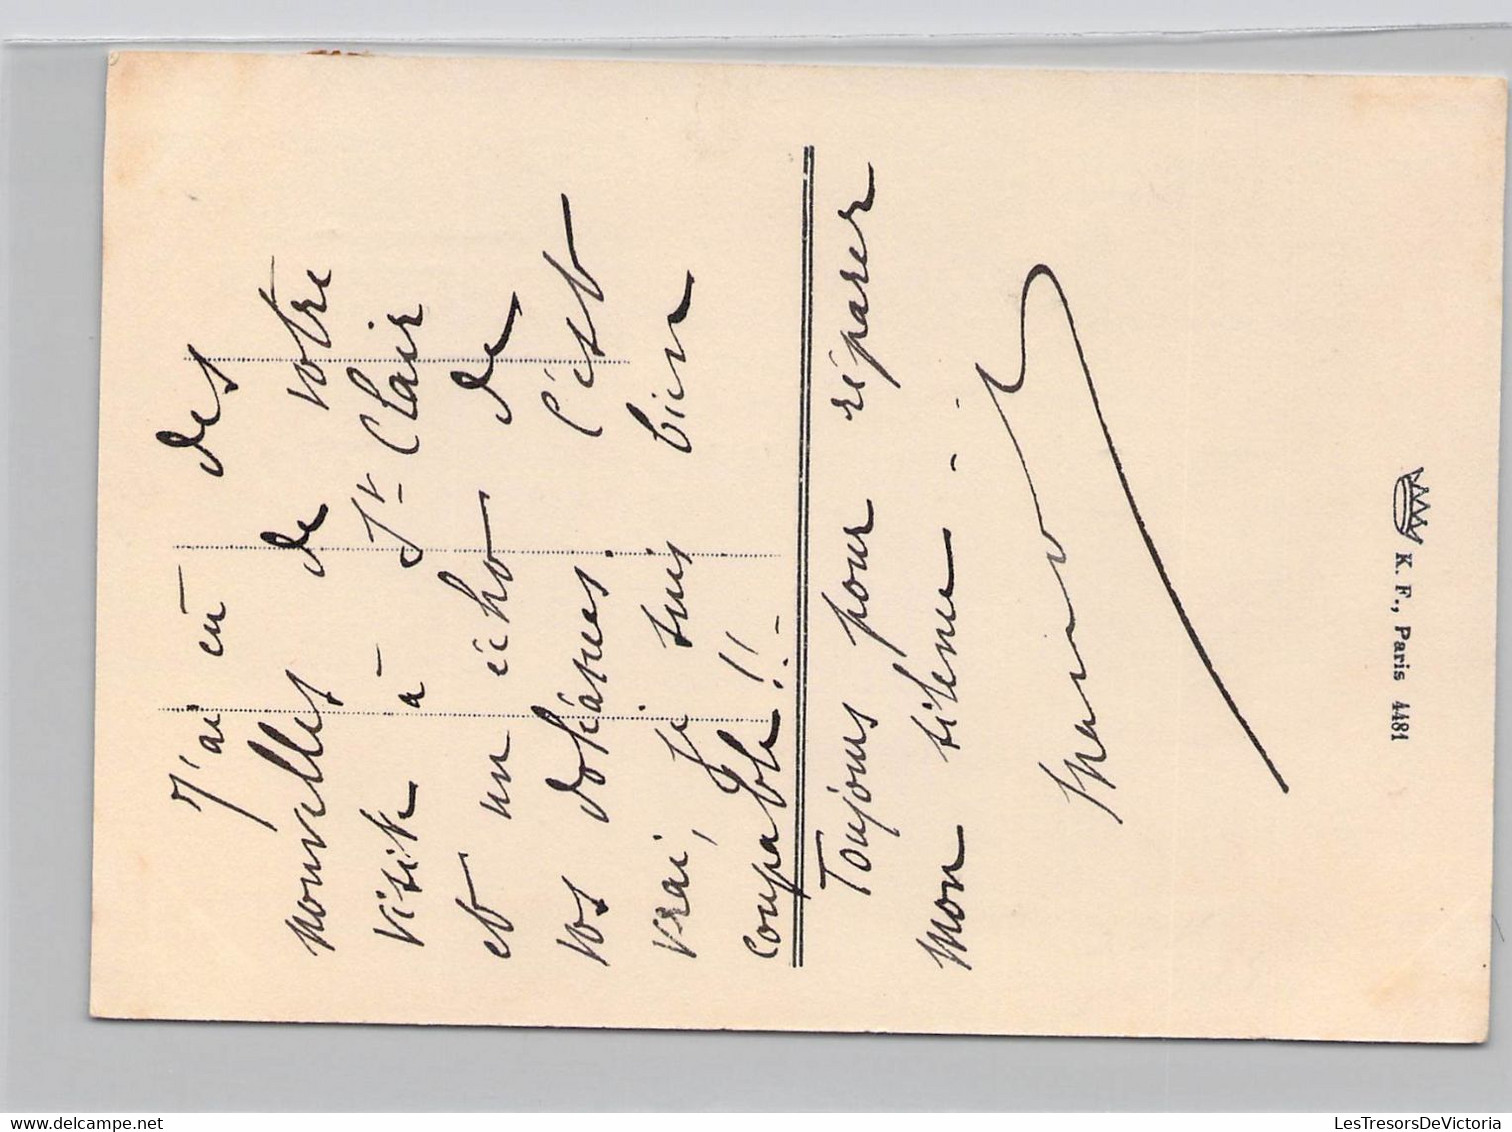 J'ai eu des
nouvelles de votre
visite à St Clair
et un écho de
vos doléances. C'est
vrai, je suis bien
coupable!!
Toujours pour réparer
mon silence
K. F., Paris 4481
LesTresorsDeVictoria